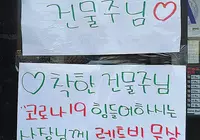 건물주님♡
♡착한 건물주님
"코로나19 힘들어하시는
사장님께 렌트비 무상